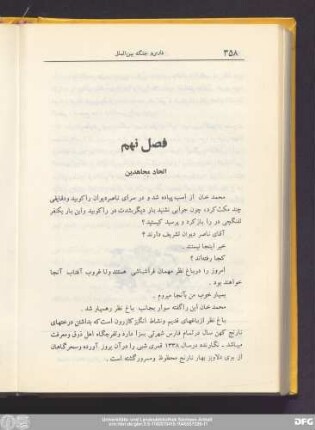 ۳۵۸
فارس و جنگ بین‌الملل
فصل نهم
اتحاد مجاهدین
محمد خان از اسب پیاده شد و در سرای ناصردیوان را کوبید و دقایقی
چند مکث کرد، چون جوابی نشنید بار دیگر بشدت در را کوبید و این بار یکنفر
تفنگچی در را باز کرد و پرسید کیستید؟
آقای ناصر دیوان تشریف دارند؟
خیر اینجا نیستند.
کجا رفته‌اند؟
امروز را در باغ نظر مهمان قزلباشی هستند و تا غروب آفتاب آنجا
خواهند بود.
بسیار خوب من بآنجا میروم.
محمد خان این را گفته سوار بجانب باغ نظر رهسپار شد.
باغ نظر از باغهای قدیم و نشاط انگیز کازرون است که بداشتن درختهای
نارنج کهن سال در تمام فارس شهرتی بسزا دارد و تفرجگاه اهل ذوق و معرفت
میباشد. نگارنده در سال ۱۳۳۸ قمری شبی را در آن بروز آورده و سحرگاهان
از بوی دلاویز بهار نارنج محظوظ و مسرور گشته است.